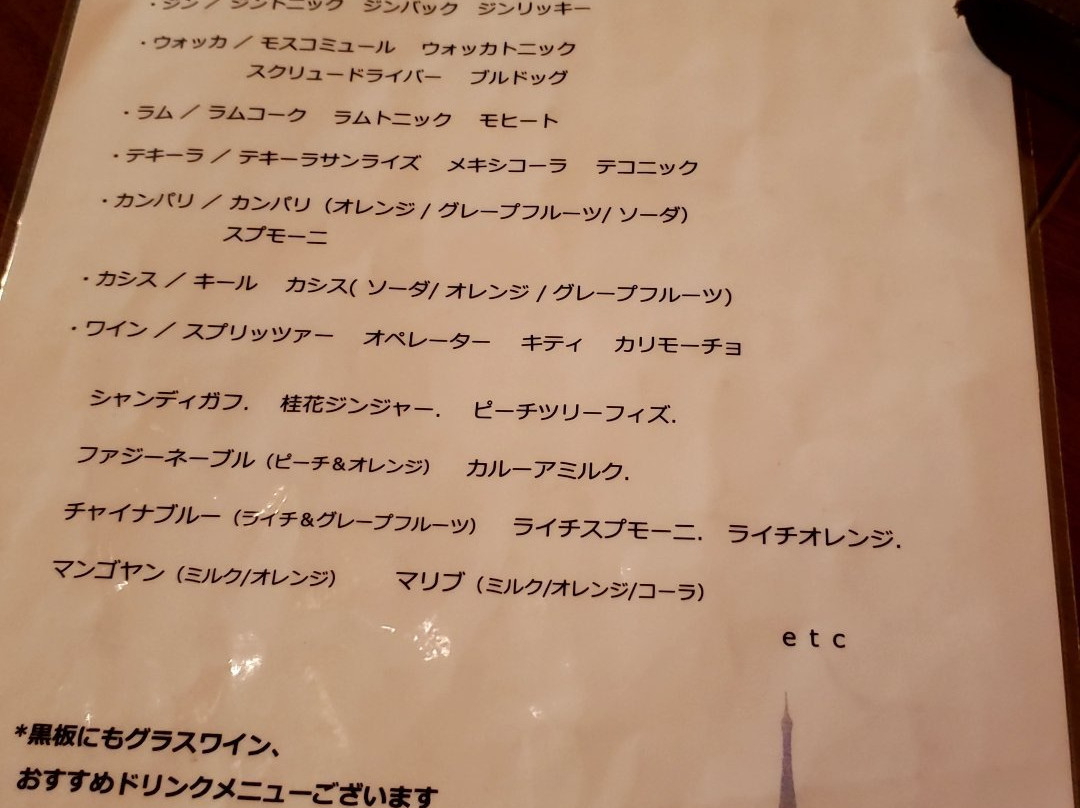 ・ジン ／ ジントニック　ジンバック　ジンリッキー
・ウォッカ ／ モスコミュール　ウォッカトニック
スクリュードライバー　ブルドッグ
・ラム ／ ラムコーク　ラムトニック　モヒート
・テキーラ ／ テキーラサンライズ　メキシコーラ　テコニック
・カンパリ ／ カンパリ（オレンジ / グレープフルーツ/ ソーダ）
スプモーニ
・カシス ／ キール　カシス( ソーダ/ オレンジ / グレープフルーツ)
・ワイン ／ スプリッツァー　オペレーター　キティ　カリモーチョ
シャンディガフ.　桂花ジンジャー.　ピーチツリーフィズ.
ファジーネーブル（ピーチ&オレンジ）　カルーアミルク.
チャイナブルー（ライチ&グレープフルーツ）　ライチスプモーニ.　ライチオレンジ.
マンゴヤン（ミルク/オレンジ）　マリブ（ミルク/オレンジ/コーラ）
e t c
*黒板にもグラスワイン、
おすすめドリンクメニューございます